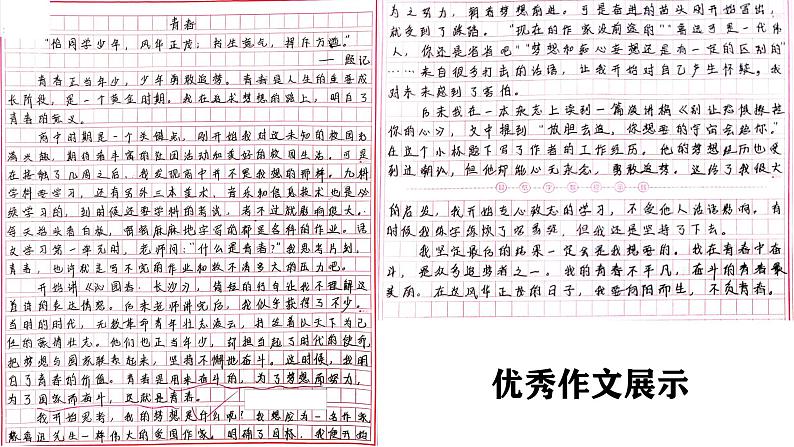 青春
“恰同学少年，风华正茂；书生意气，挥斥方遒。”
—— 题记
青春正当年少，少年勇敢追梦。青春是人生的重要成
长阶段，是一个黄金时期。我在追求梦想的路上，明白了
青春的意义。
高中时期是一个关键点，刚开始我对这未知的校园充
满兴趣，期待着丰富的社团活动和美好的校园生活。可是
在接触了几周之后，我发现高中并不是我想的那样。九科
学科要学习，还有另外三本美术、音乐和信息技术也是必
须学习的，到时候还要学科的考试，若不过就影响很大。
每天抬头看白板，密密麻麻地字写的都是各科的作业。语
文学习第一单元时，老师问：“什么是青春？”我思考片刻，
青春，也许就是写不完的作业和数不清多大的压力吧。
开始讲《沁园春·长沙》，简短的行句让我不理解这
首诗的表达情感。后来老师讲完后，我似乎获得了不少。
当时的时代，无数革命青年壮志凌云，抒发着以天下为己
任的豪情壮志。他们也正当少年，却担当起了时代的使命，
把梦想与国家联系起来，坚持不懈地奋斗。这时候，我明
白了青春的价值。青春是用来奋斗的，为了梦想而努力，
为了国家而奋斗，这就是青春。
我开始思考，我的梦想是什么呢？我想成为一名作家
像鲁迅先生一样伟大的爱国作家。明确了目标，我便开始
为之努力，朝着梦想前进。可是奋进的苗头刚开始冒出，
就受到了嘲讽。“现在的作家没前途的”“鲁迅可是一代伟
人，你还是省省吧”“梦想和痴心妄想还是有一定的区别的”
……来自很多打击的话语，让我开始对自己产生怀疑，我
对未来感到了害怕。
后来我在一本杂志上读到一篇演讲稿《别让恐惧撩拨
你的心》，文中提到“放胆去追，你想要的宇宙会给你。”
在这个小标题下写了作者的工作经历。他的梦想经历也受
到过嘲讽，但他却能心无杂念，勇敢追梦。这给了我很大
的启发，我开始专心致志的学习，不受他人话语影响。有
时候我练字练烦了写累后，但我还是坚持了下去。
我坚定最后的结果一定会是我想要的。我在青春中奋
斗，是众多追梦者之一。我的青春不平凡，奋斗的青春最
美丽。在这风华正茂的日子，我要向阳而生，不负青春。
优秀作文展示